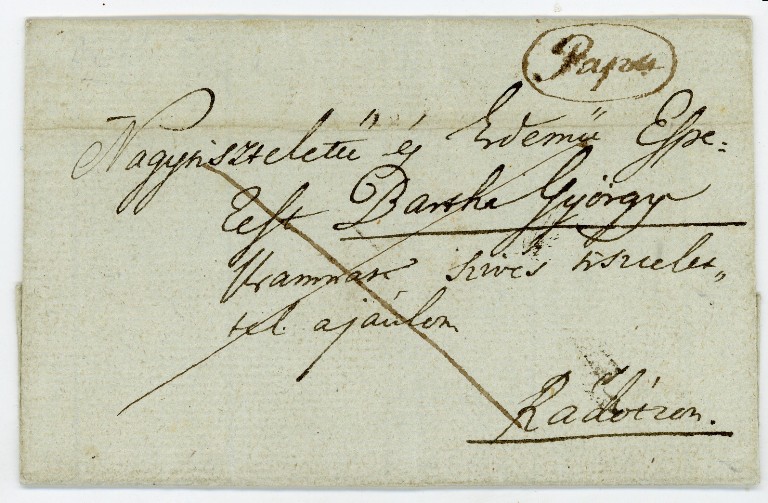 Papa
Nagytiszteletü és Erdemü Espe=
rest Bartha György
Uramnak szives tisztelet„
tel ajánlom